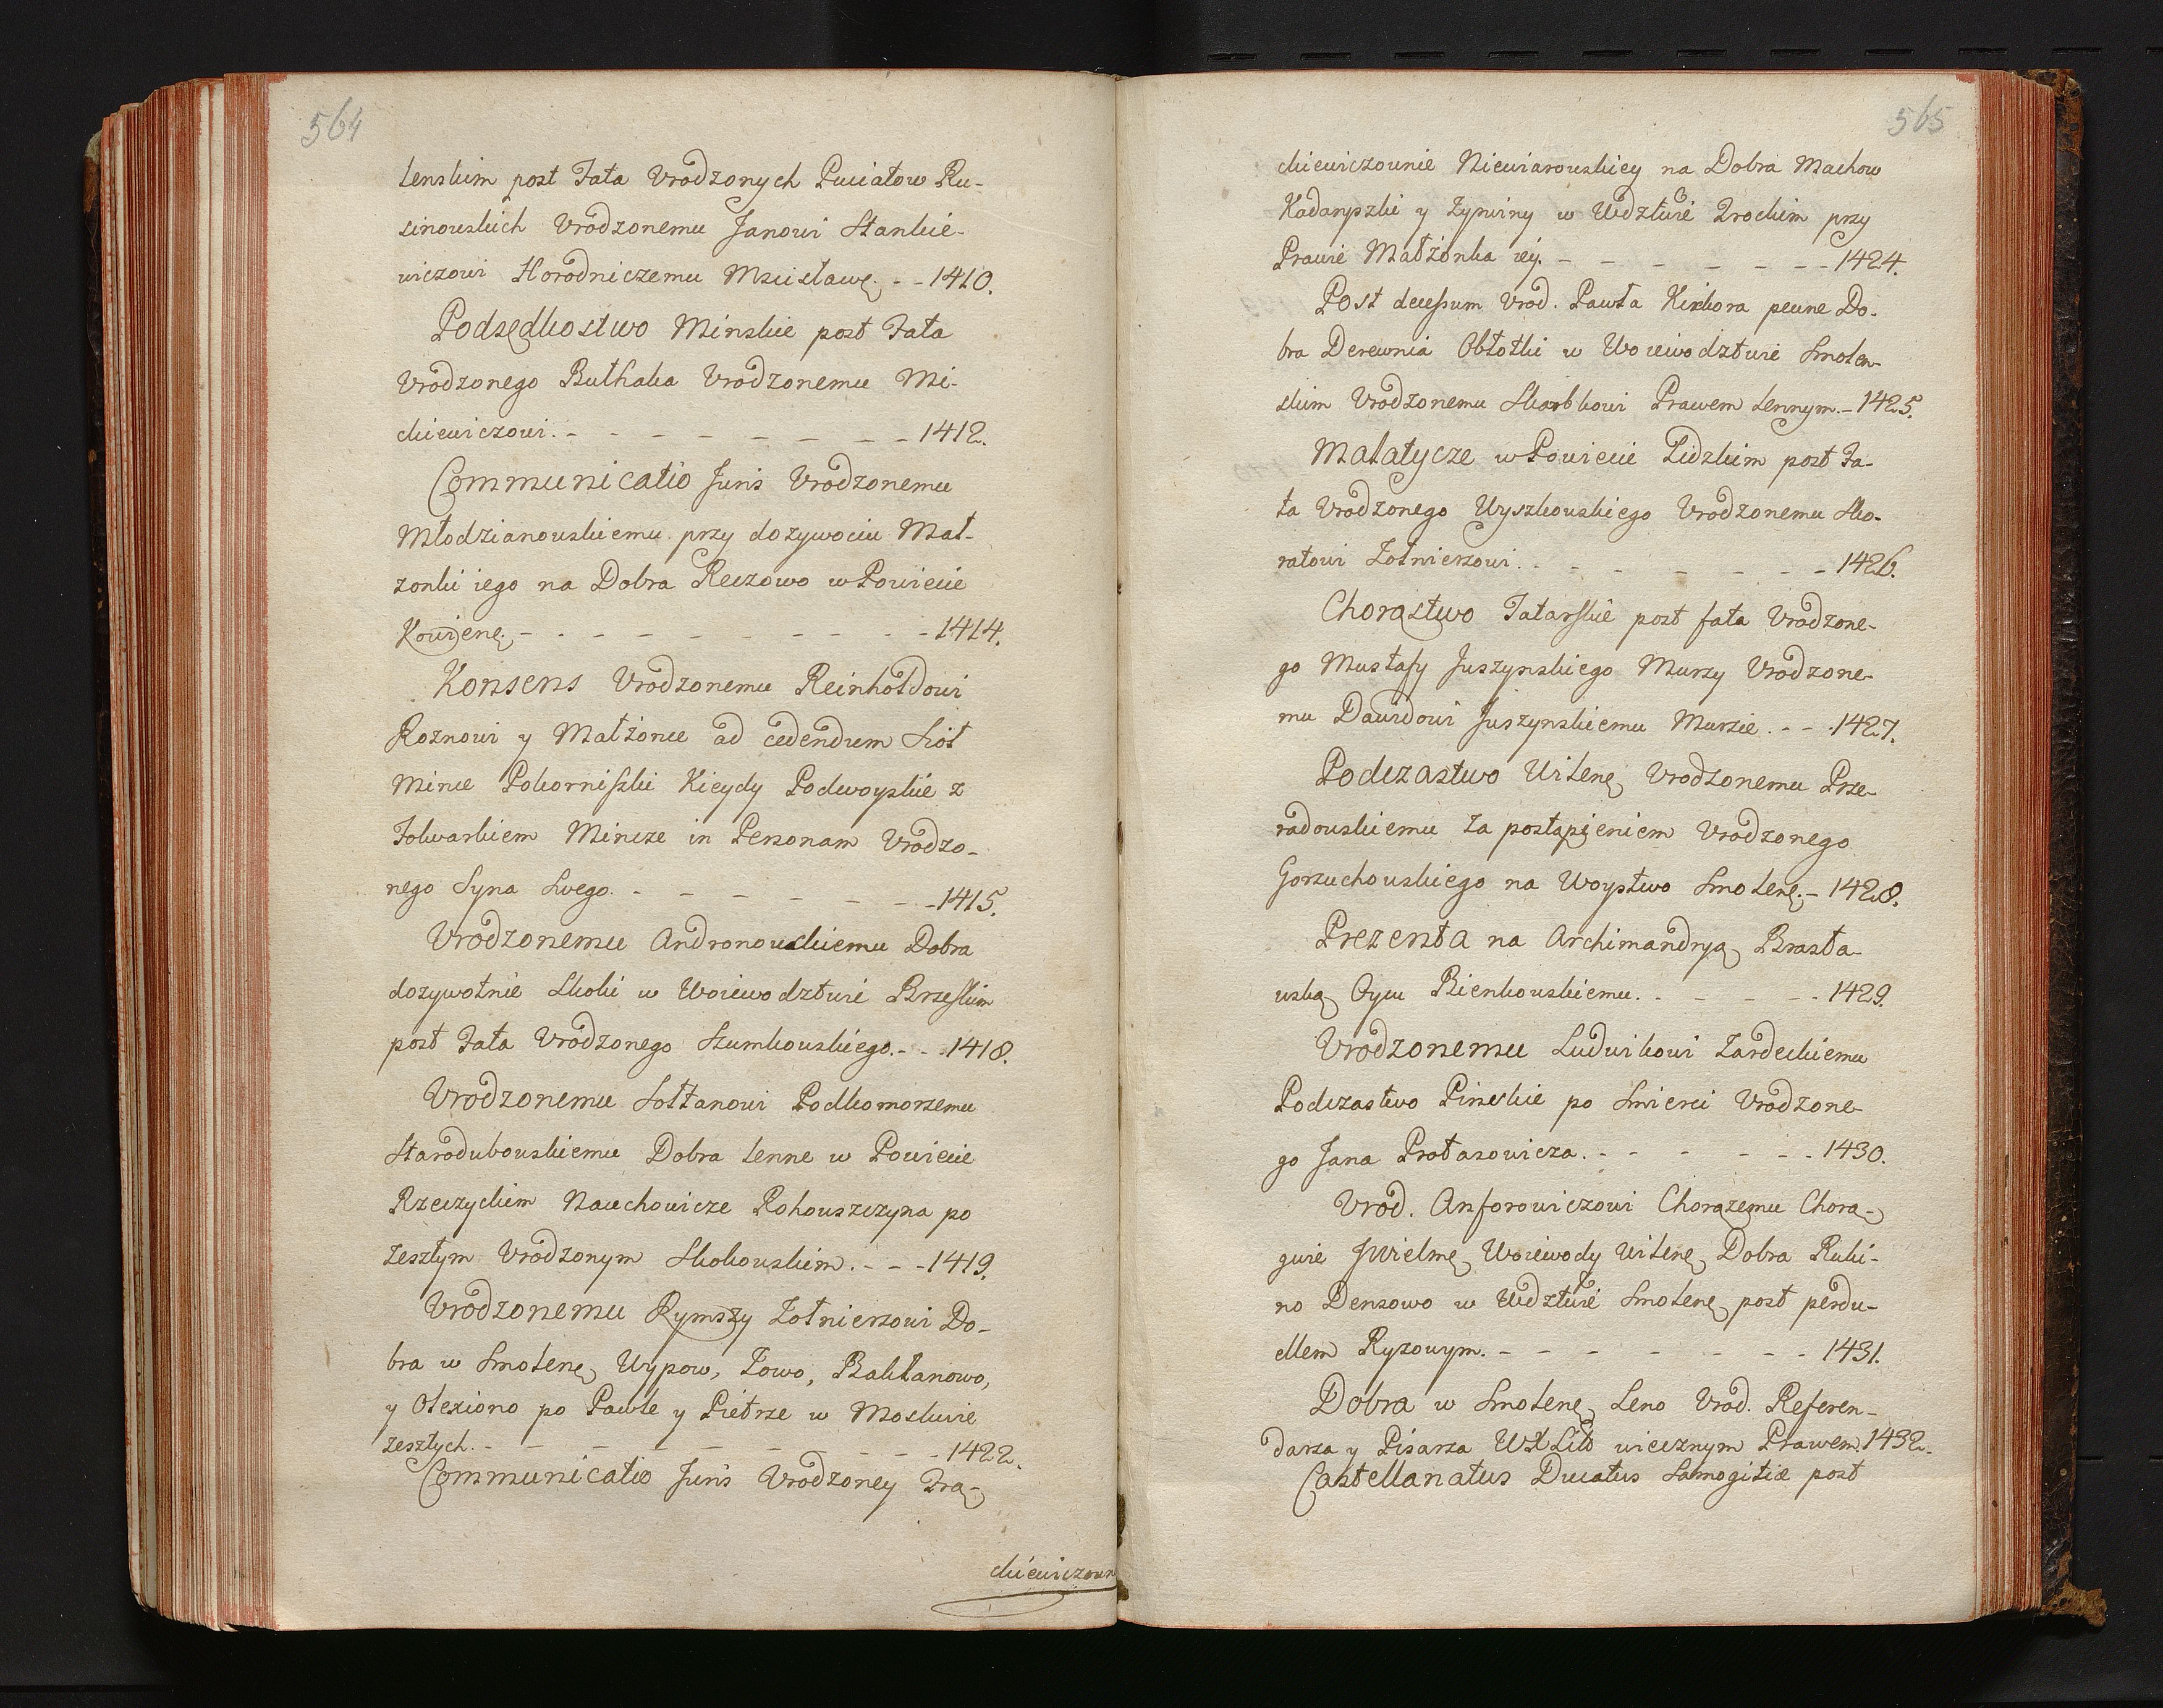 564
lenskim post Fata Vrodzonych Puciatow Ru-
sinowskich Vrodzonemu Janowi Stankie-
wiczowi Horodniczemu Mscisławę. - - 1410.
Podsędkostwo Minskie post Fata
Vrodzonego Buthaka Vrodzonemu Mi-
ckiewiczowi. - - - - - - - - 1412.
Communicatio Juris Vrodzonemu
Młodzianowskiemu przy dozywociu Mał-
zonki iego na Dobra Reczowo w Powiecie
Kowienę. - - - - - - - - - - 1414.
Konsens Vrodzonemu Reinhołdowi
Roznowi y Małżonce ad cedendum Sioł
Mince Pokorniszki Kieydy Podwoyskie z
Folwarkiem Mincze in Personam Vrodzo-
nego Syna Swego. - - - - - - - 1415.
Vrodzonemu Andronowskiemu Dobra
dozywotnie Skoki w Woiewodztwie Brzeskim
post Fata Vrodzonego Szumkowskiego. - - - 1418.
Vrodzonemu Sołtanowi Podkomorzemu
Starodubowskiemu Dobra lenne w Powiecie
Rzeczyckim Nauchowicze Rohowszczyna po
zeszłym Vrodzonym Skokowskim. - - - 1419.
Vrodzonemu Rymszy Zołnierzowi Do-
bra w Smolenę Wypow, Łowo, Bakłanowo,
y Olexiono po Pawle y Pietrze w Moskwie
zeszłych. - - - - - - - - - - 1422.
Communicatio Juris Vrodzoney Fra-
ckiewiczown
565
ckiewiczownie Niewiarowskiey na Dobra Machow
Kadaryszki y Zyrwiny w Wdztwie Trockim przy
Prawie Małżonka iey. - - - - - - - 1424.
Post decessum Vrod. Pawła Kirkora pewne Do-
bra Derewnia Obłotki w Woiewodztwie Smolen-
skim Vrodzonemu Skarbkowi Prawem Lennym. - 1425.
Małatycze w Powiecie Lidzkim post Fa-
ta Vrodzonego Wyszkowskiego Vrodzonemu Sko-
ratowi Zołnierzowi. - - - - - - - 1426.
Chorąstwo Tatarskie post fata Vrodzone-
go Mustafy Juszynskiego Murzy Vrodzone-
mu Dawidowi Juszynskiemu Murzie. - - - 1427.
Podczastwo Wilenę Vrodzonemu Prze-
radowskiemu za postąpieniem Vrodzonego
Gorzuchowskiego na Woystwo Smolenę. - 1428.
Prezenta na Archimandryą Brasła-
wską Oycu Bienkowskiemu. - - - - - 1429.
Vrodzonemu Ludwikowi Zardeckiemu
Podczastwo Pinskie po Smierci Vrodzone-
go Jana Protasowicza. - - - - - - 1430.
Vrod. Anforowiczowi Chorążemu Chorą-
gwie JWielmę Woiewody Wilenę Dobra Ruki-
no Denzowo w Wdztwie Smolenę post perdu-
ellem Ryzowym. - - - - - - - 1431.
Dobra w Smolenę Leno Vrod. Referen-
darza y Pisarza WXLitõ wiecznym Prawem. 1432.
Castellanatus Ducatus Samogitiæ post